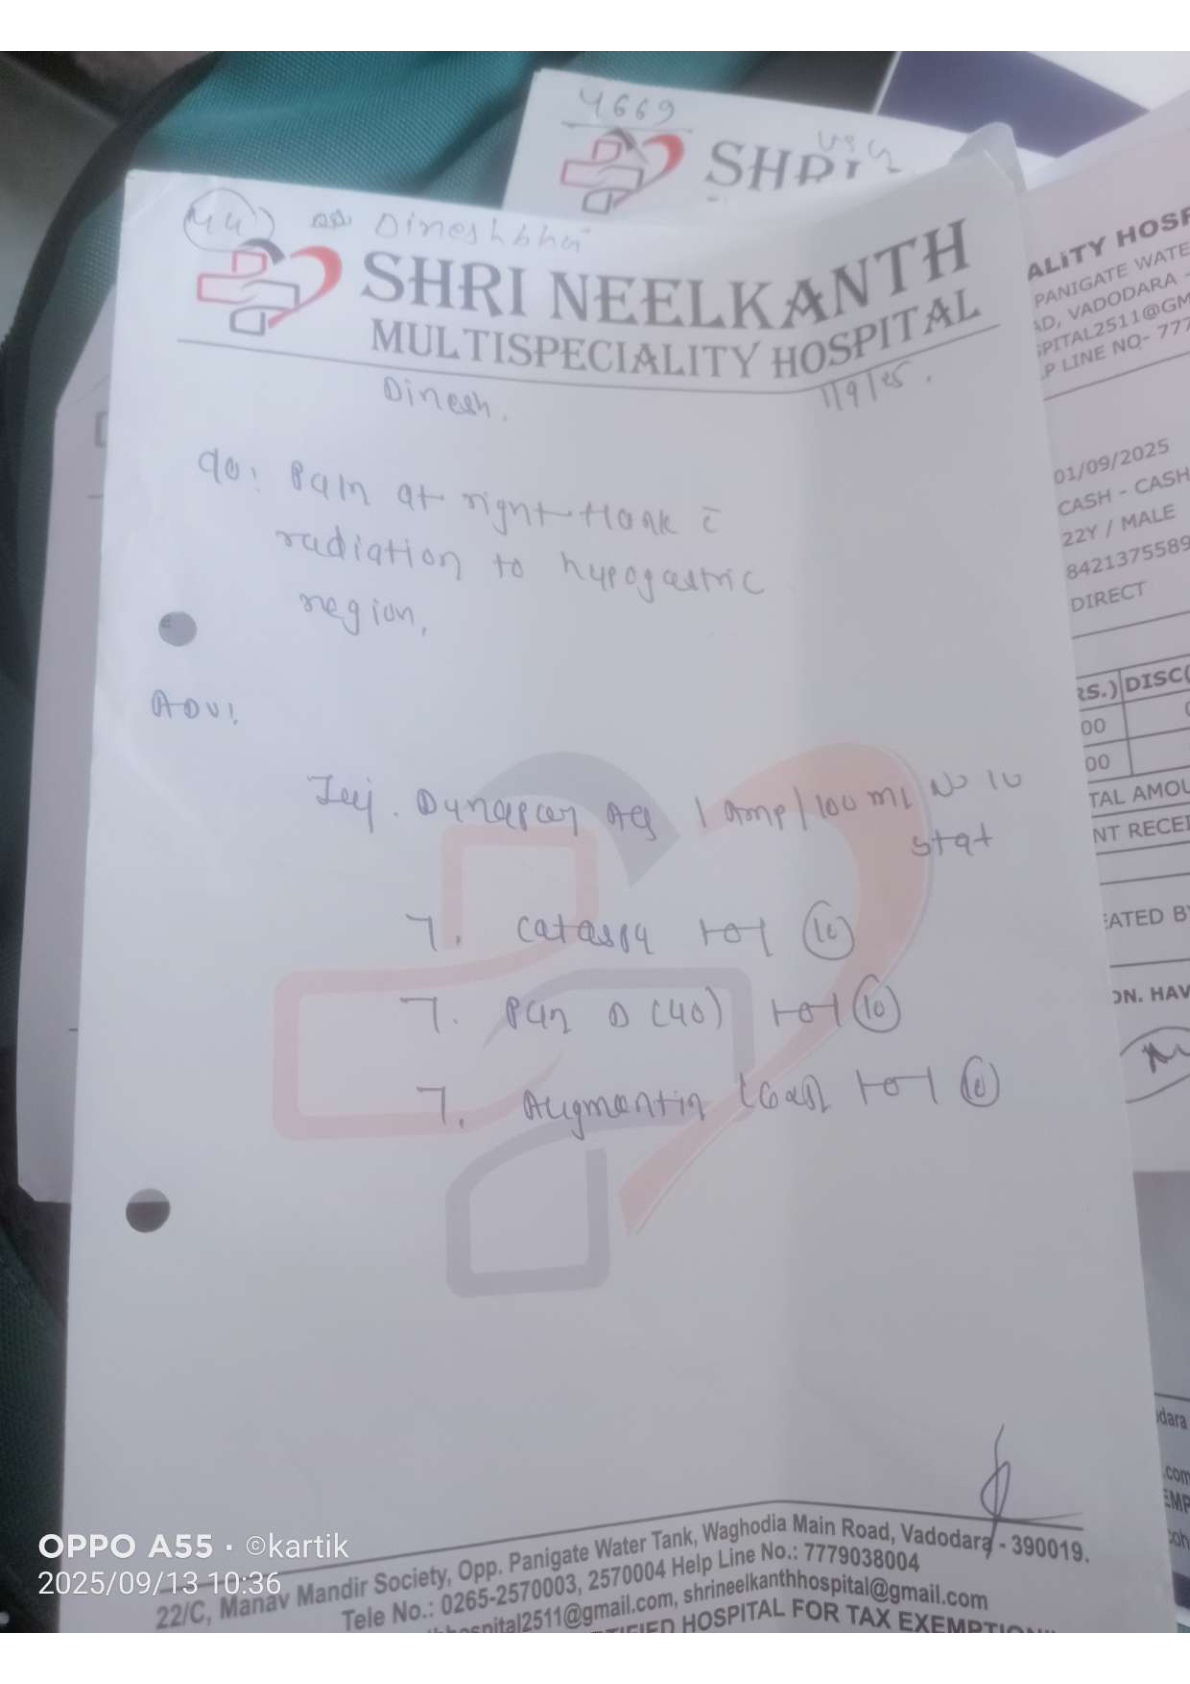 4669
SHRI
44 Dineshbhai
SHRI NEELKANTH
MULTISPECIALITY HOSPITAL
Dinesh.
1/9/25.
c/o: Pain at right flank c̄
radiation to hypogastric
region,
ADV:
Inj. Dynapar AQ 1 Amp/100 ml NS IV
stat
T. Cataspa 1-0-1 (10)
T. Pan D (40) 1-0-1 (10)
T. Augmentin (625) 1-0-1 (10)
22/C, Manav Mandir Society, Opp. Panigate Water Tank, Waghodia Main Road, Vadodara - 390019.
Tele No.: 0265-2570003, 2570004 Help Line No.: 7779038004
hospital2511@gmail.com, shrineelkanthhospital@gmail.com
HOSPITAL FOR TAX EXEMPTION
ALiTY HOSP
PANIGATE WATE
AD, VADODARA -
SPITAL2511@GM
P LINE NO- 777
01/09/2025
CASH - CASH
22Y / MALE
8421375589
DIRECT
RS.) DISC(
00
00
TAL AMOU
NT RECEI
EATED BY
ON. HAV
dara
.com
EMP
OPPO A55 · ©kartik
2025/09/13 10:36